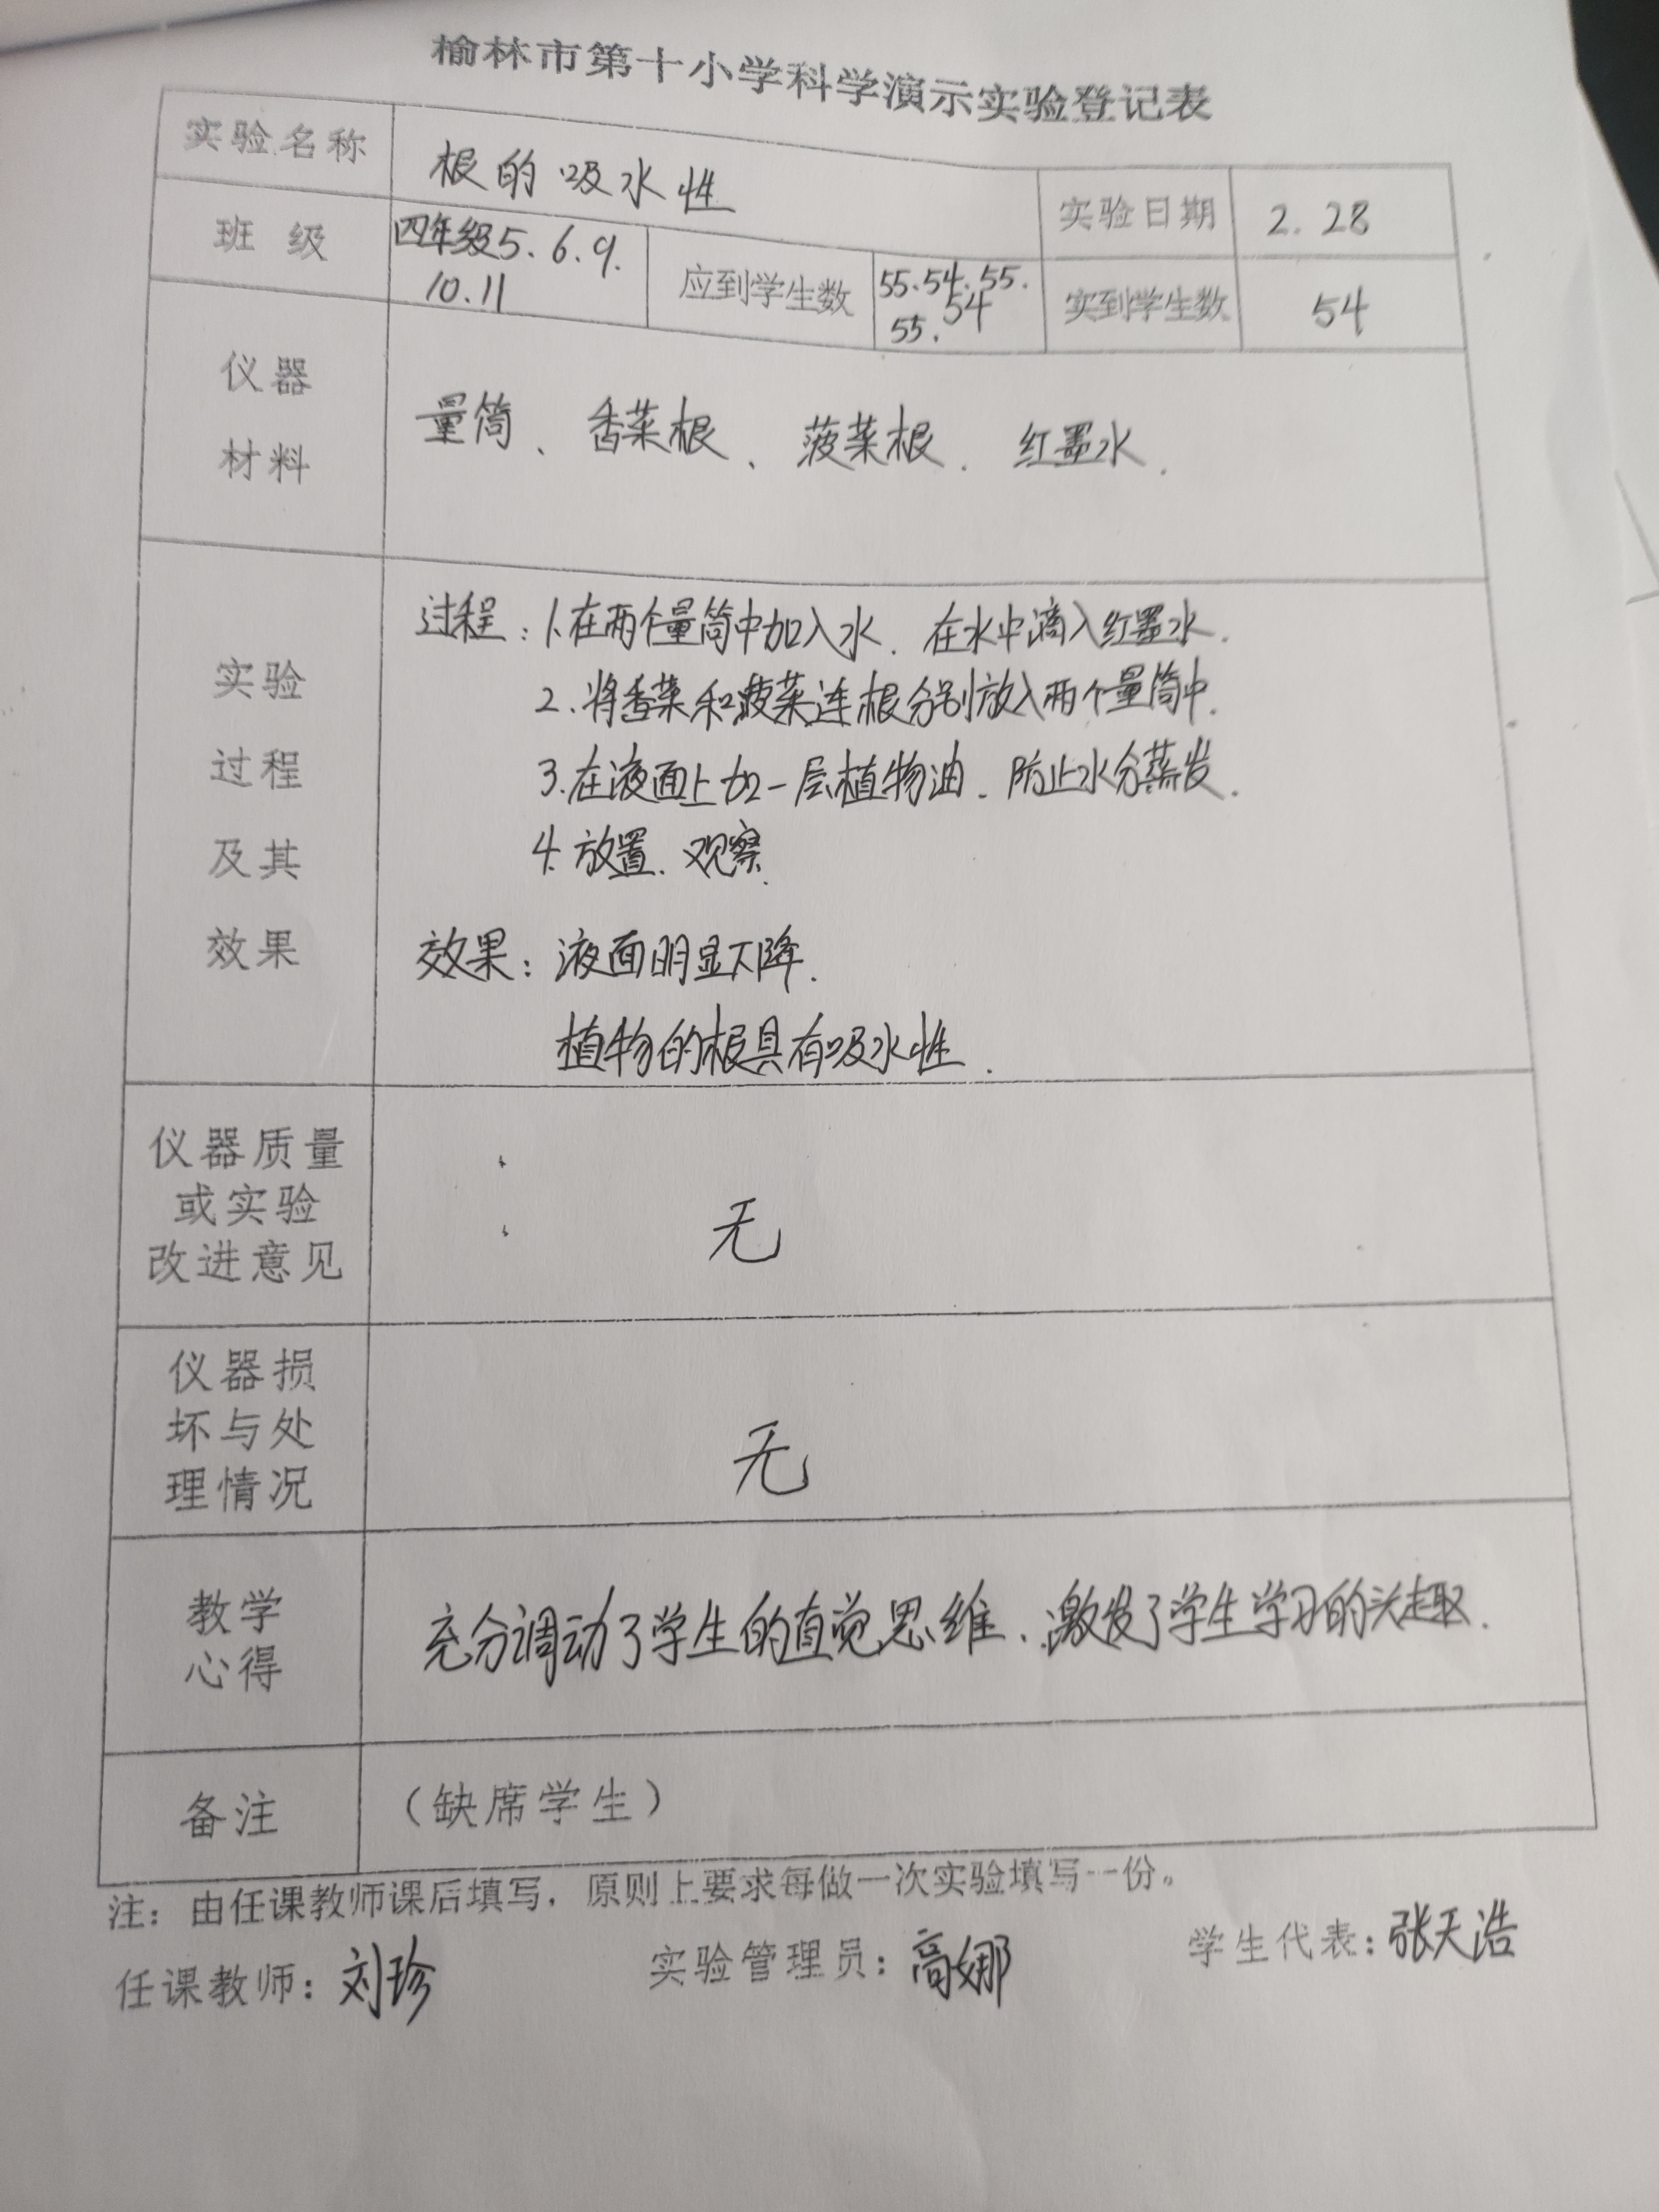 榆林市第十小学科学演示实验登记表
实验名称 根的吸水性 实验日期 2.28
班 级 四年级5.6.9.
10.11
应到学生数 55.54.55.
55.54
实到学生数 54
仪器
材料
量筒、香菜根、菠菜根、红墨水.
实验
过程
及其
效果
过程:1.在两个量筒中加入水、在水中滴入红墨水.
2.将香菜和菠菜连根分别放入两个量筒中.
3.在液面上加一层植物油、防止水分蒸发.
4.放置、观察.
效果:液面明显下降.
植物的根具有吸水性.
仪器质量
或实验
改进意见
无
仪器损
坏与处
理情况
无
教学
心得
充分调动了学生的直觉思维、激发了学生学习的兴趣.
备注 (缺席学生)
注:由任课教师课后填写,原则上要求每做一次实验填写一份。
任课教师:刘珍 实验管理员:高娜 学生代表:张天浩